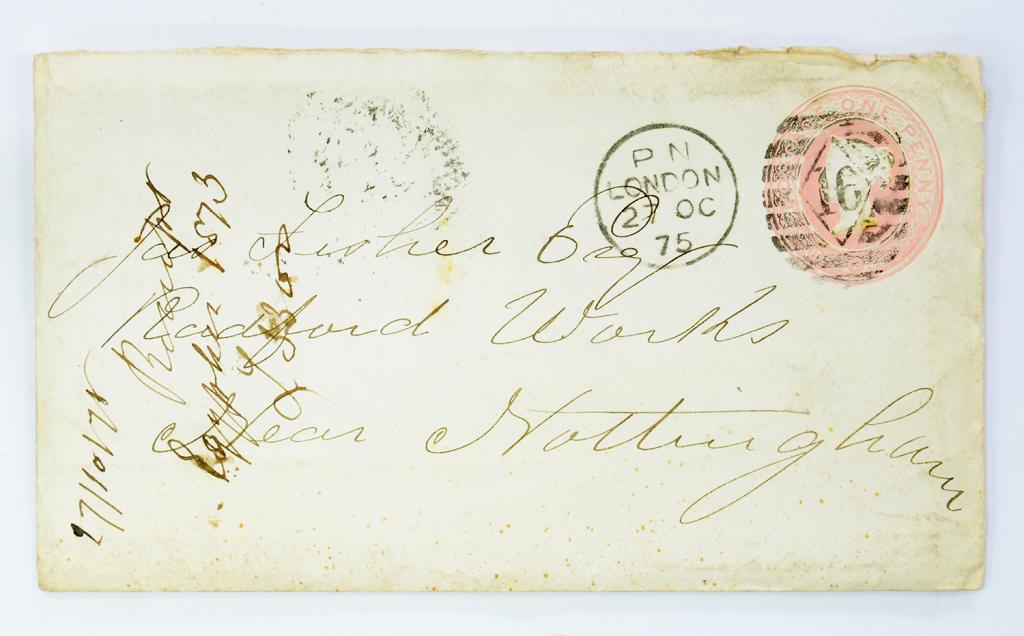 ONE PENNY
16
PN
LONDON
27 OC
75
Jas Fisher Esq
Radford Works
Near Nottingham
27/10/75
1873